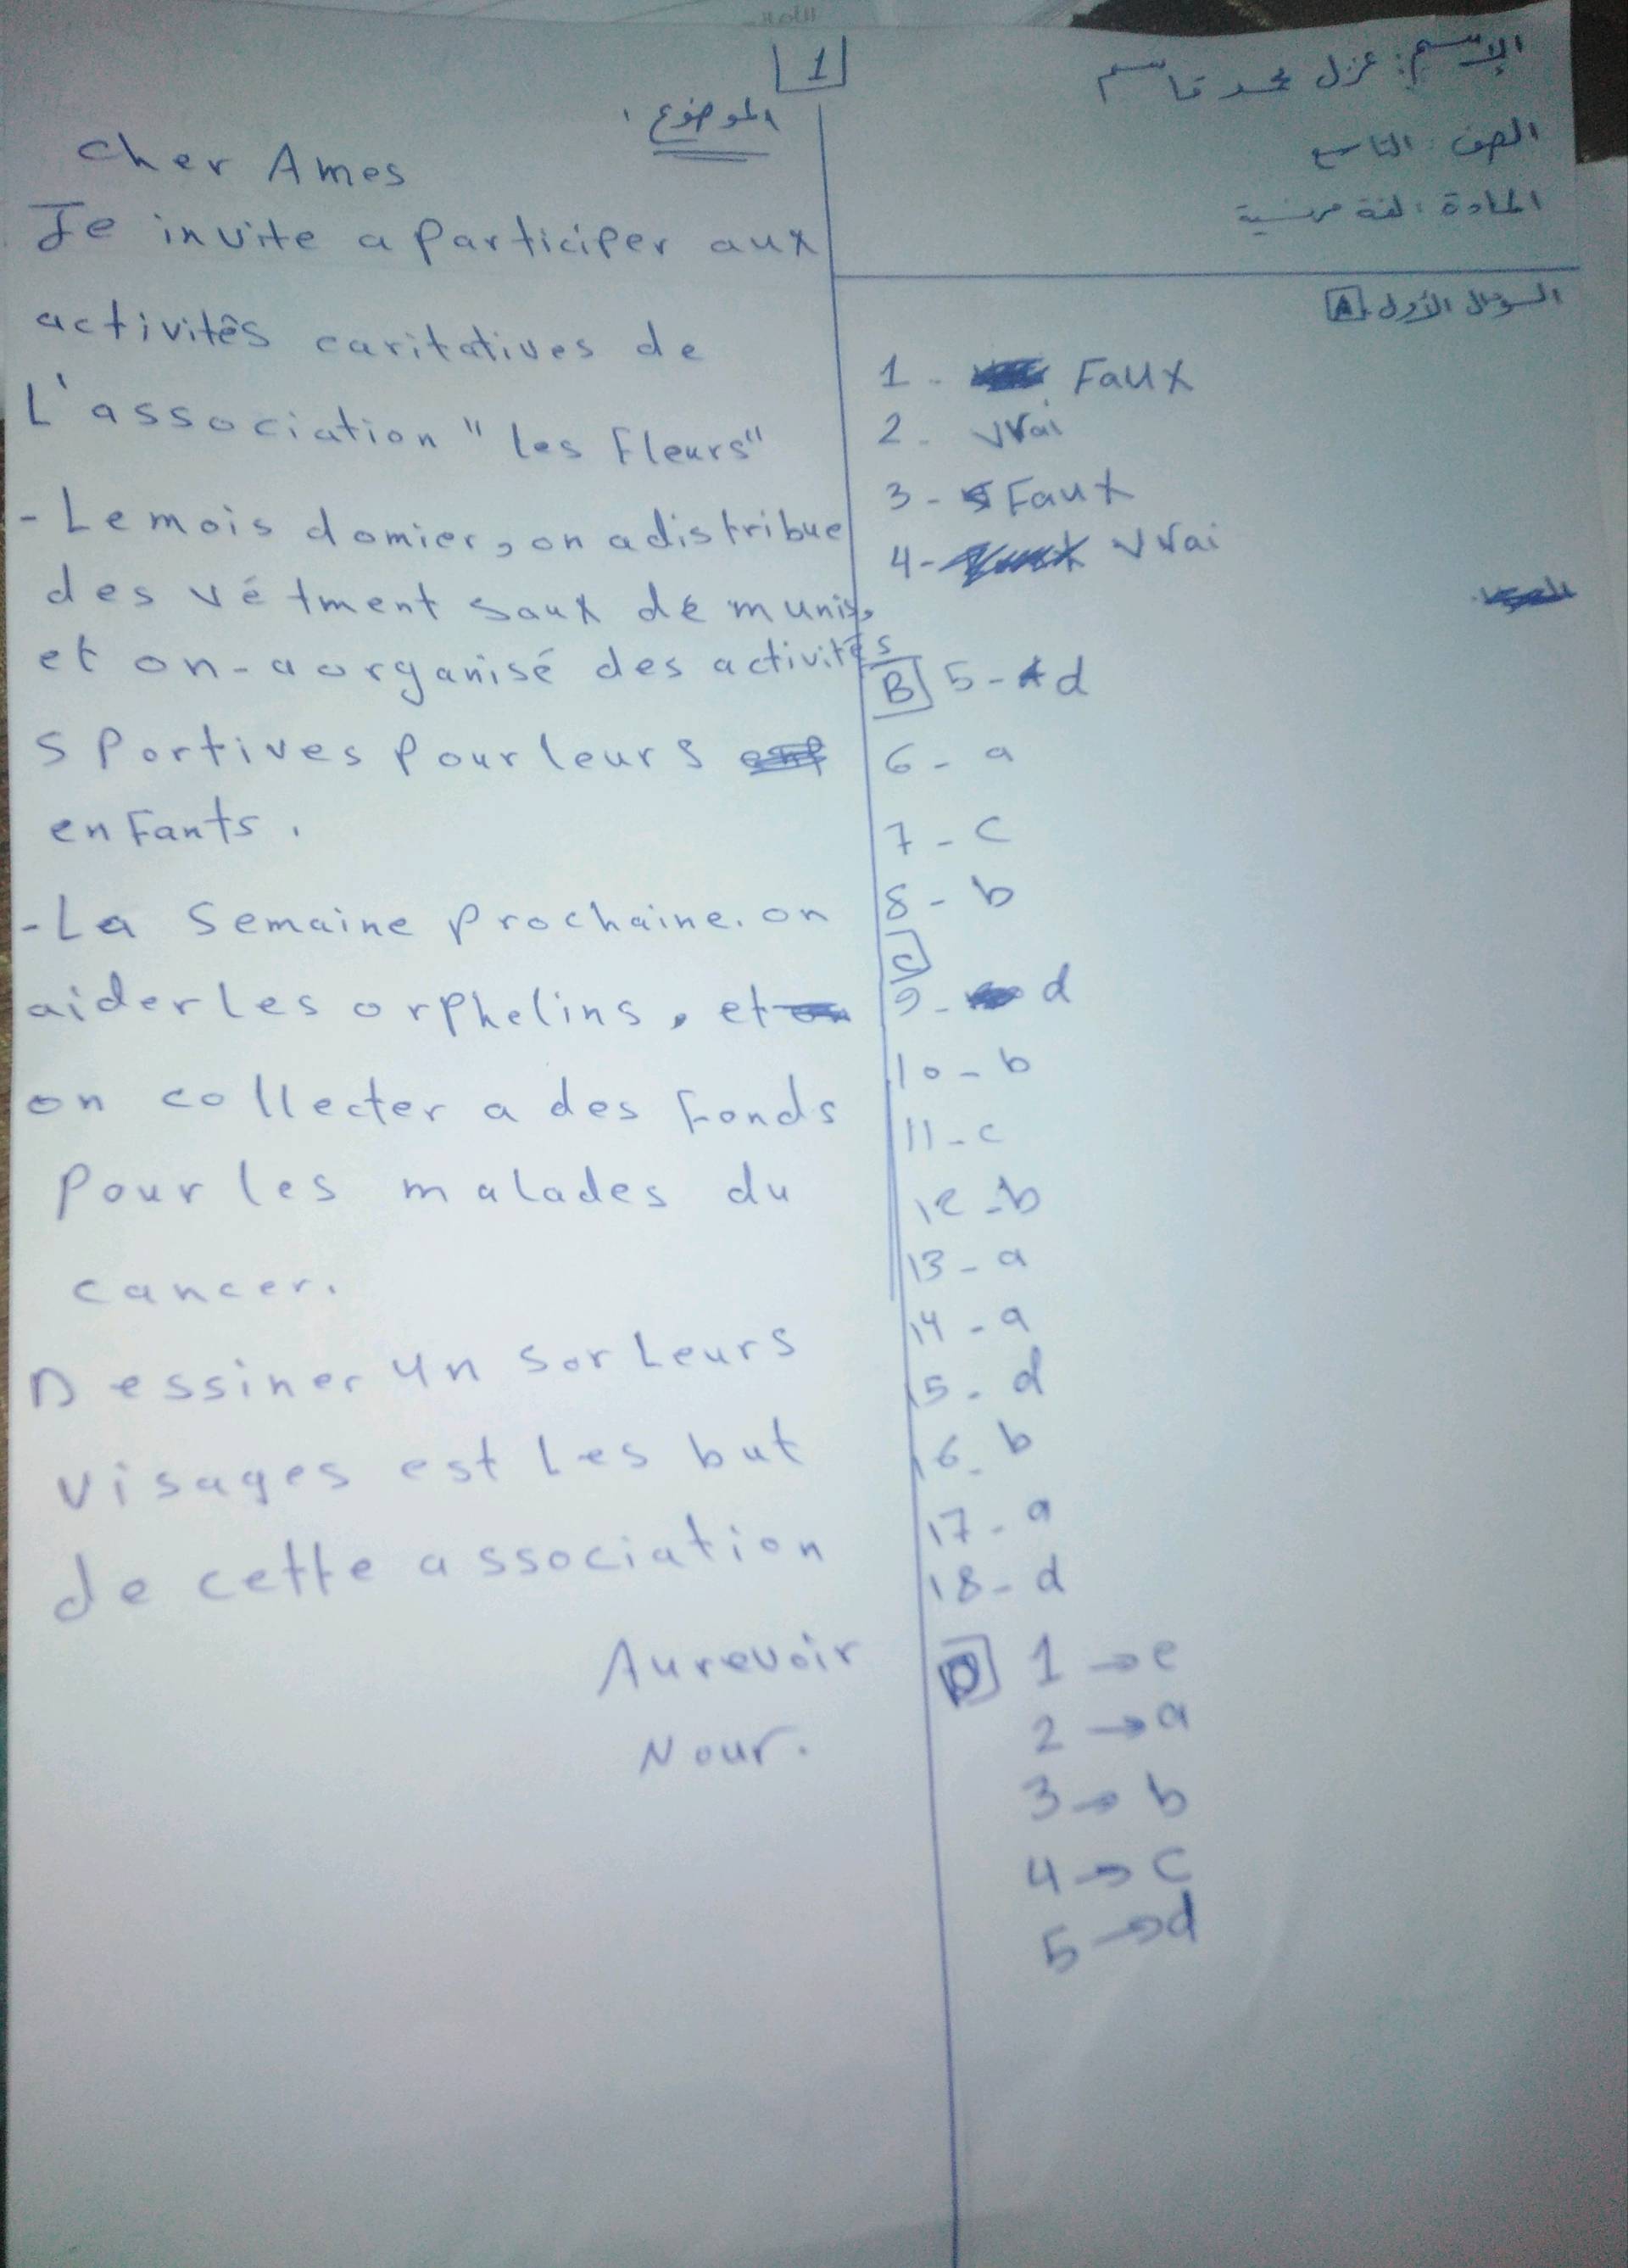 1
الإسم: غزل محمد قاسم
الصف: التاسع
المادة: لغة فرنسية
السؤال الأول: A
1- Faux
2- Vrai
3- Faux
4- Vrai
B 5- d
6- a
7- c
8- b
C
9- d
10- b
11- c
12- b
13- a
14- a
15- d
16- b
17- a
18- d
D 1 → e
2 → a
3 → b
4 → c
5 → d
الموضوع:
cher Ames
Je invite a participer aux
activitês caritatives de
L'association "les fleurs"
- Le mois domier, on a distribue
des vétment saux de munis,
et on-a organisé des activités
sportives pour leurs
enfants.
- La semaine prochaine. on
aider les orphelins, et
on collecter a des fonds
pour les malades du
cancer.
Dessiner un sor leurs
visages est les but
de cette association
Au revoir
Nour.